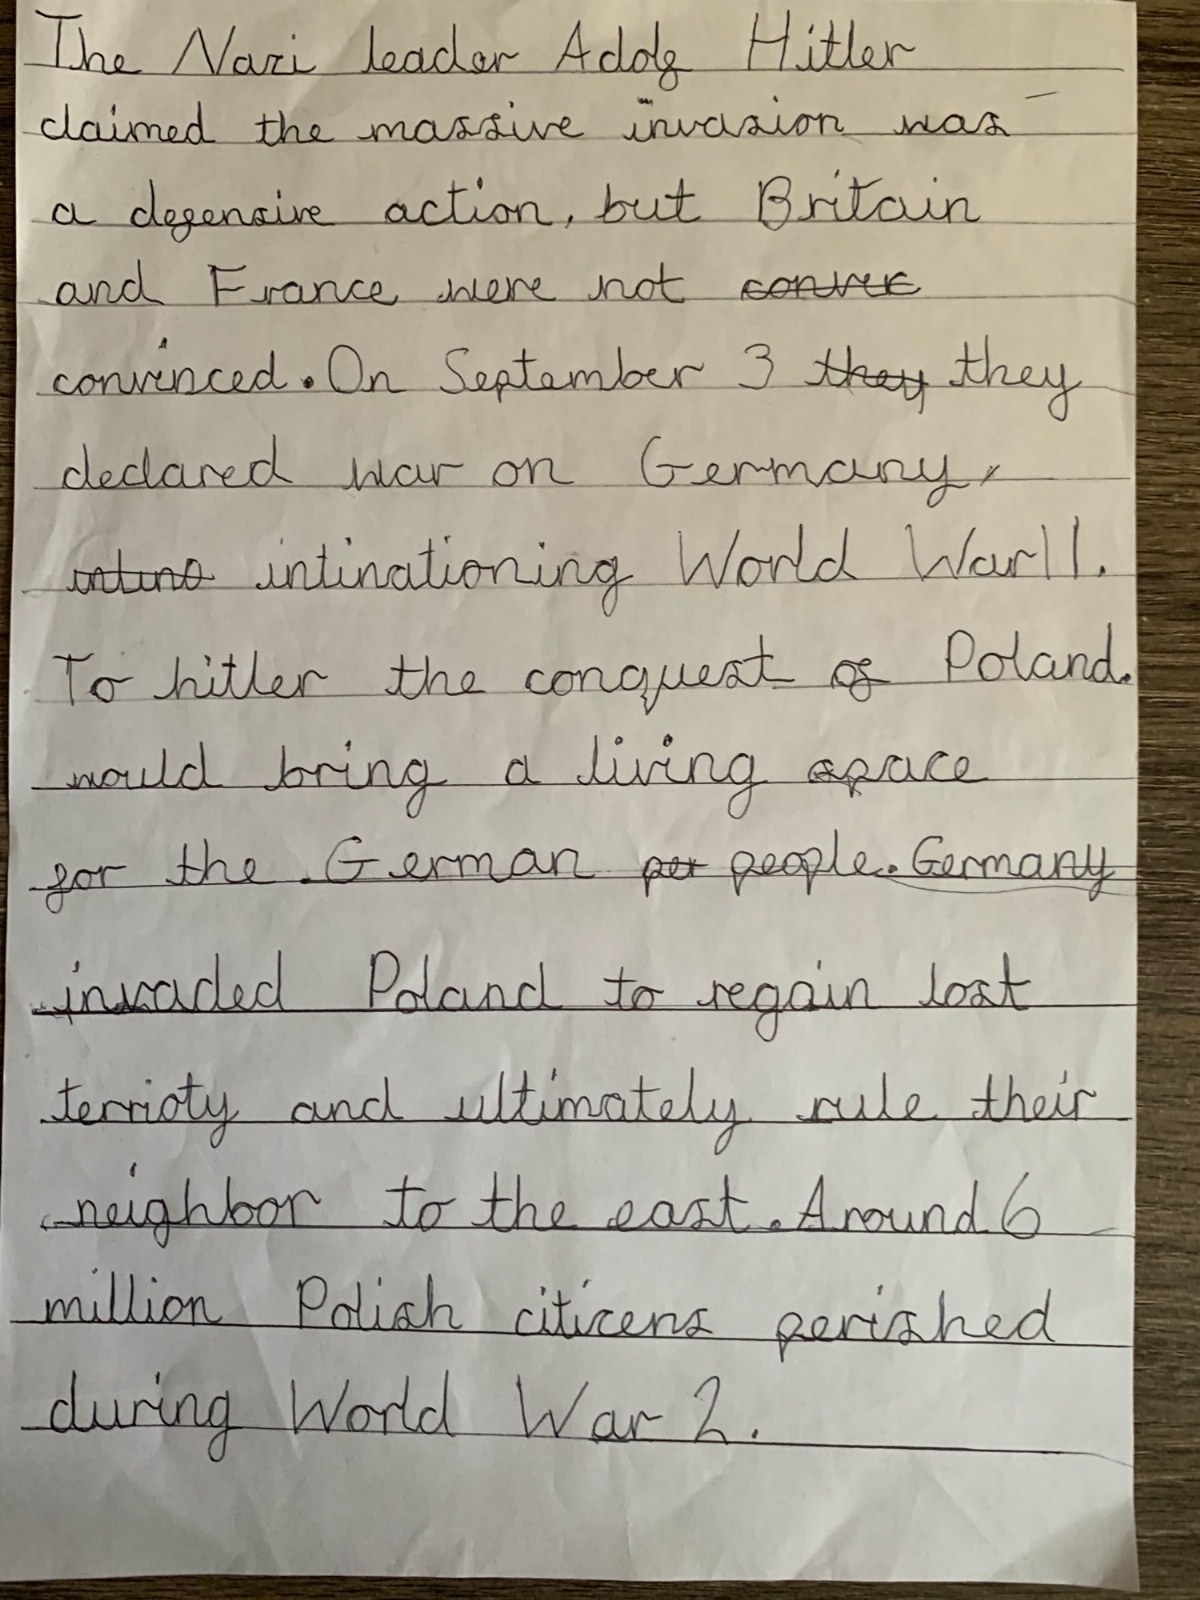 The Nazi leader Adolf Hitler
claimed the massive invasion was
a defensive action, but Britain
and France were not
convinced. On September 3 they they
declared war on Germany,
intinationing World War II.
To hitler the conquest of Poland.
would bring a living space
for the German people. Germany
invaded Poland to regain lost
terrioty and ultimately rule their
neighbor to the east. Around 6
million Polish citicens perished
during World War 2.